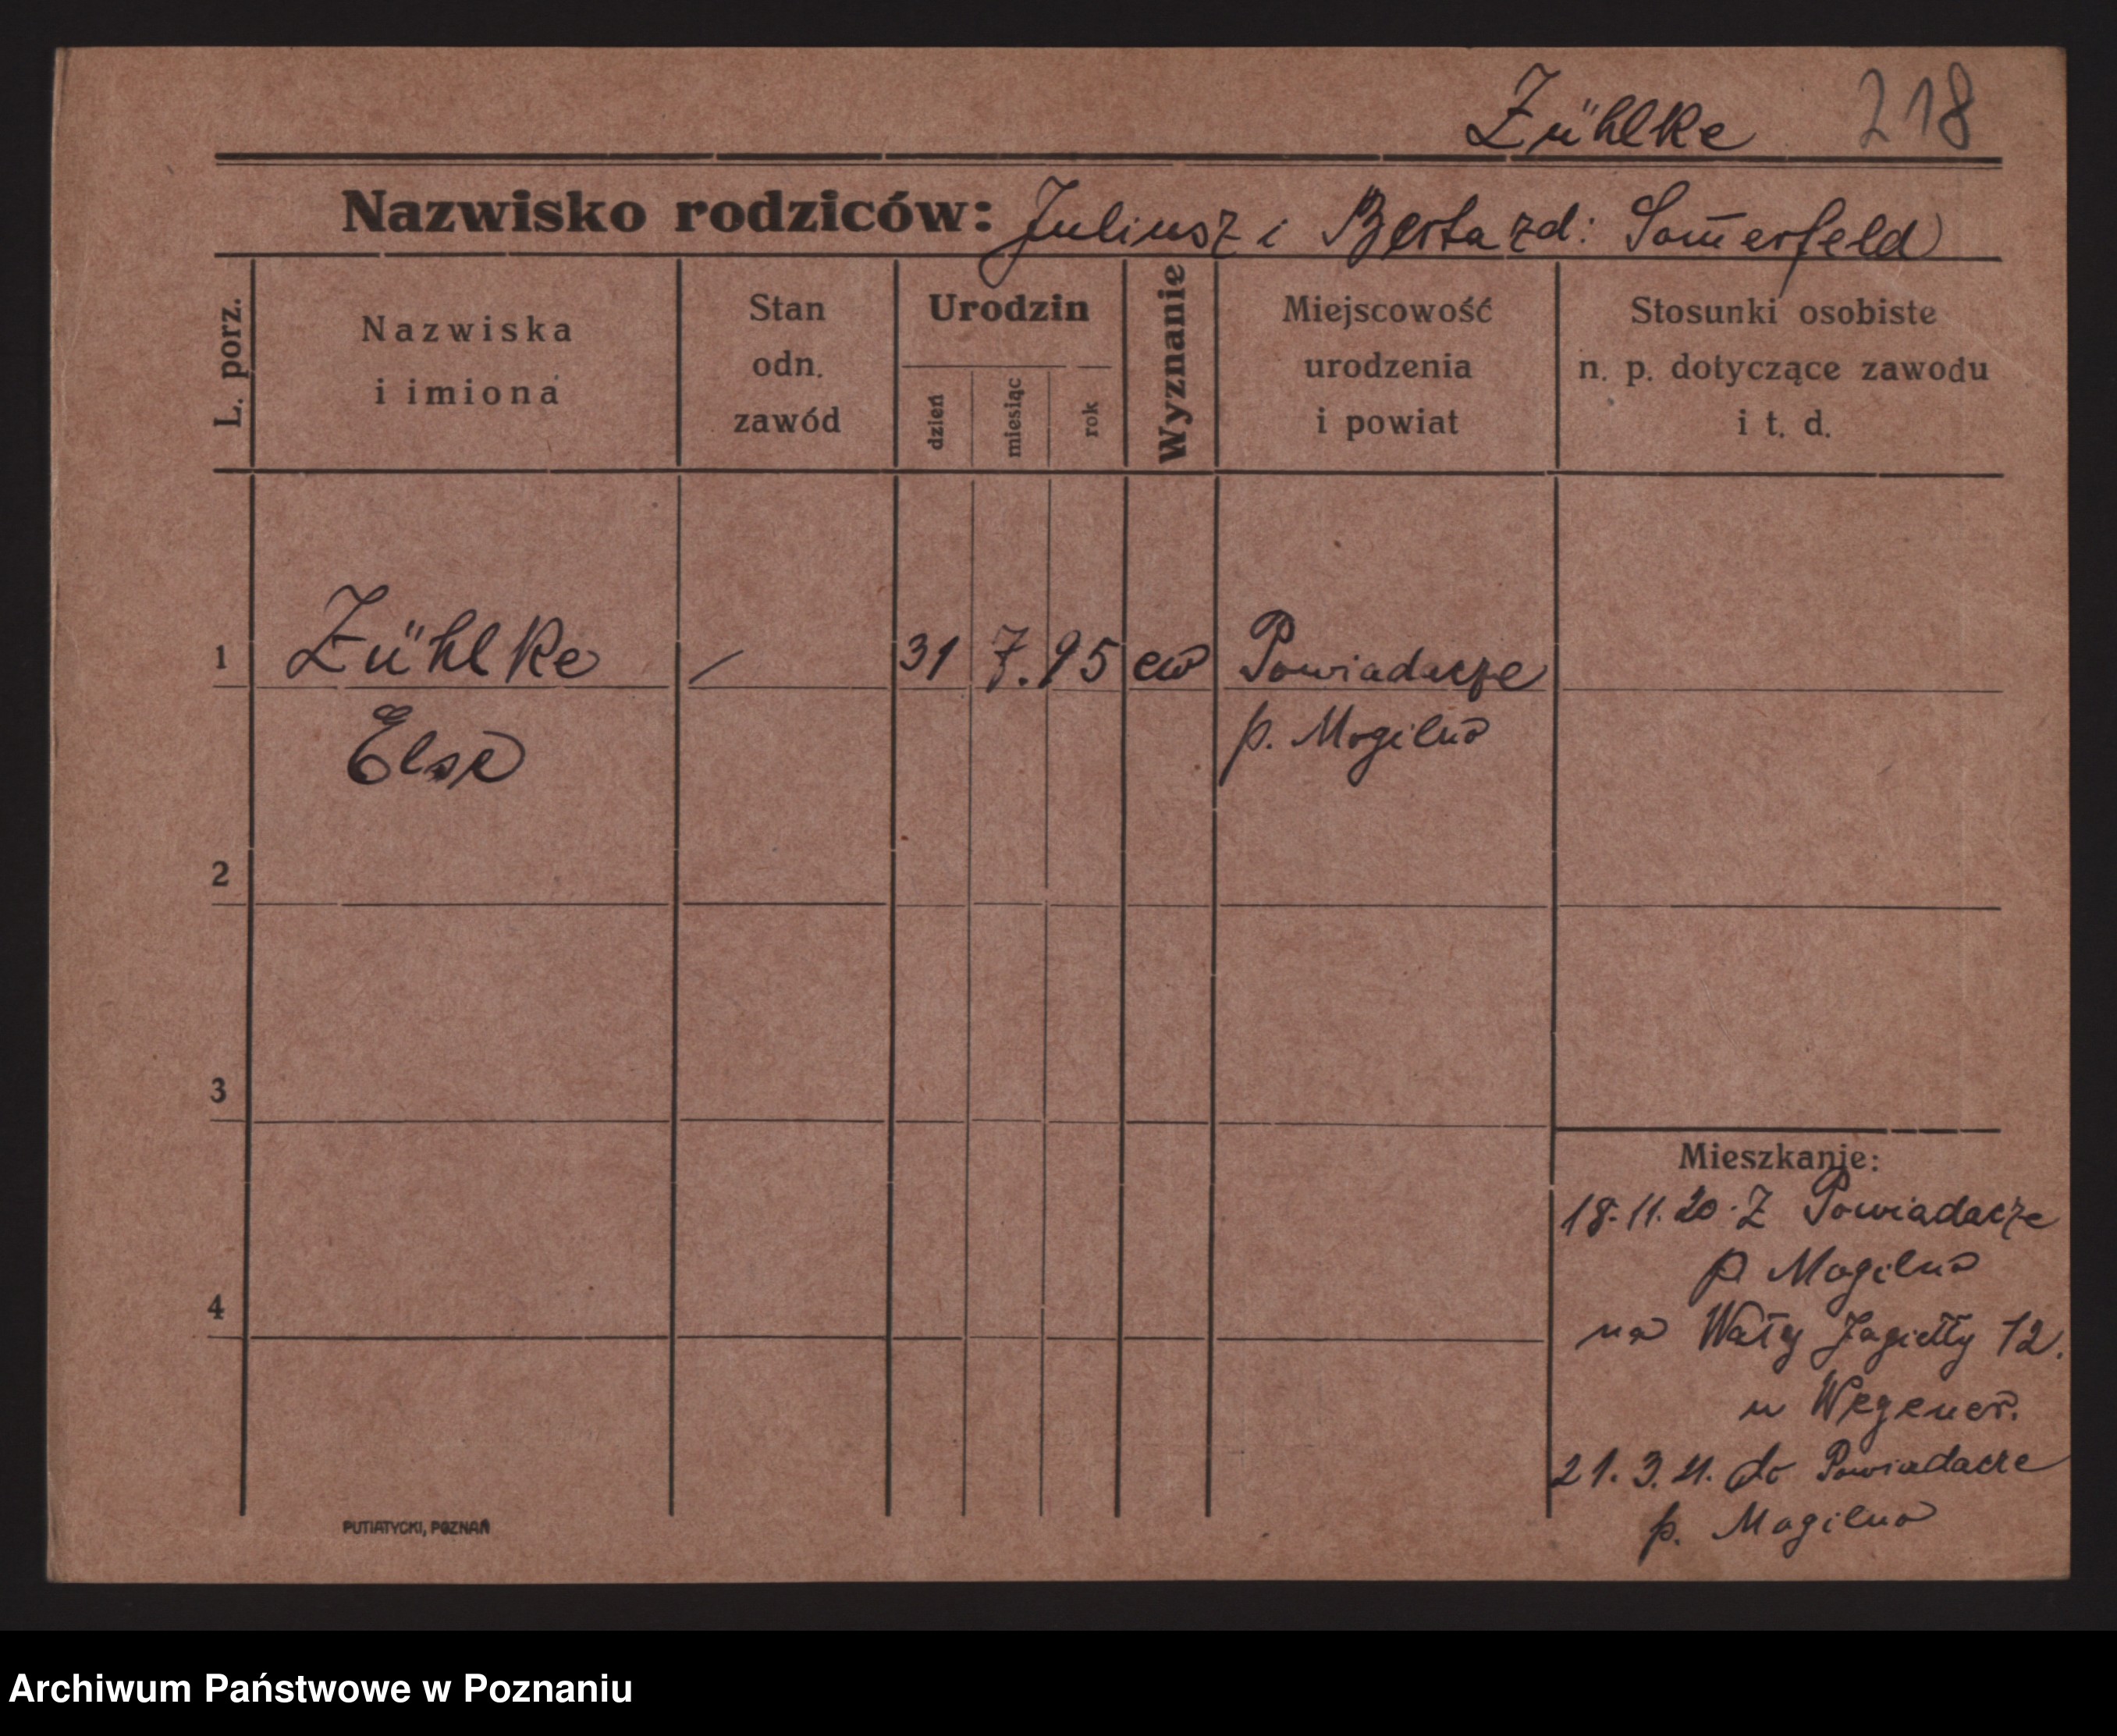 Zühlke 218
Nazwisko rodziców: Juliusz i Berta zd: Som̄erfeld
L. porz.
Nazwiska
i imiona
Stan
odn.
zawód
Urodzin
dzień
miesiąc
rok
Wyznanie
Miejscowość
urodzenia
i powiat
Stosunki osobiste
n. p. dotyczące zawodu
i t. d.
1 Zühlke / 31 7. 95 ew Powiadacze
Else p. Mogilno
2
3
4
Mieszkanie:
18.11.20. Z Powiadacze
p Mogilno
na Wały Jagiełły 12.
u Wegener.
21.3.21. do Powiadacze
p. Mogilno
PUTIATYCKI, POZNAŃ
Archiwum Państwowe w Poznaniu